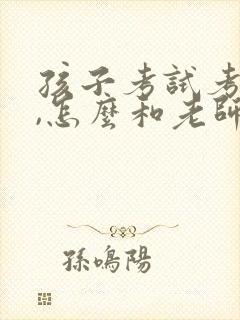 孩子考試考
,怎麼和老師
孫鳴陽